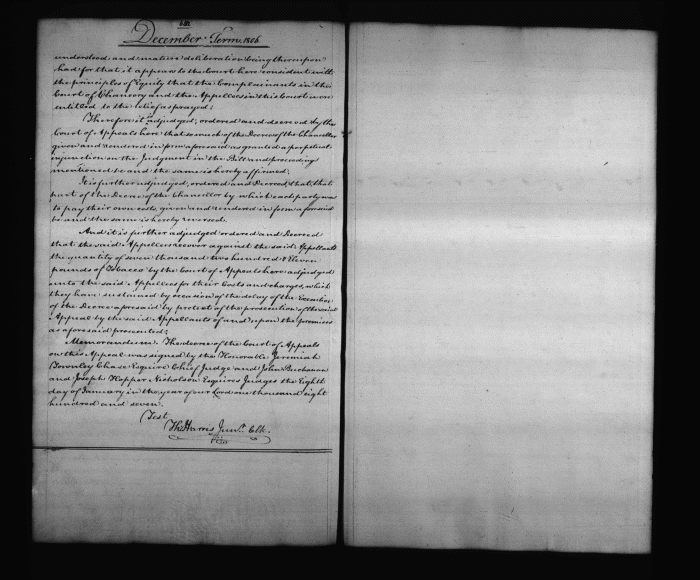 December Term 1806
understood and mature deliberation being thereupon
had for that it appears to the Court here consistent with
the principles of Equity that the Complainants in the
Court of Chancery and the Appellees in this Court were
entitled to the relief as prayed;
Therefore it adjudged, ordered and decreed by the
Court of Appeals here that so much of the Decree of the Chancellor
given and rendered in form aforesaid as granted a perpetual
injunction on the Judgment in the Bill and proceedings
mentioned be and the same is hereby affirmed.
It is further adjudged, ordered and Decreed, that, that
part of the Decree of the Chancellor by which each party was
to pay their own costs given and rendered in form aforesaid
be and the same is hereby reversed.
And it is further adjudged ordered and Decreed
that the said Appellees recover against the said Appellants
the quantity of seven thousand two hundred & Eleven
pounds of Tobacco by the Court of Appeals here adjudged
unto the said Appellees for their Costs and charges, which
they have sustained by occasion of the delay of the Execution
of the Decree aforesaid by pretext of the prosecution of the said
Appeal by the said Appellants of and upon the premises
as aforesaid presented;
Memorandum. The decree of the Court of Appeals
on this Appeal was signed by the Honorable Jeremiah
Townley Chase Esquire Chief Judge and John Buchanan
and Joseph Hopper Nicholson Esquires Judges the Eighth
day of January in the year of our Lord one thousand eight
hundred and seven.
Test
Th: Harris Junr. Clk.